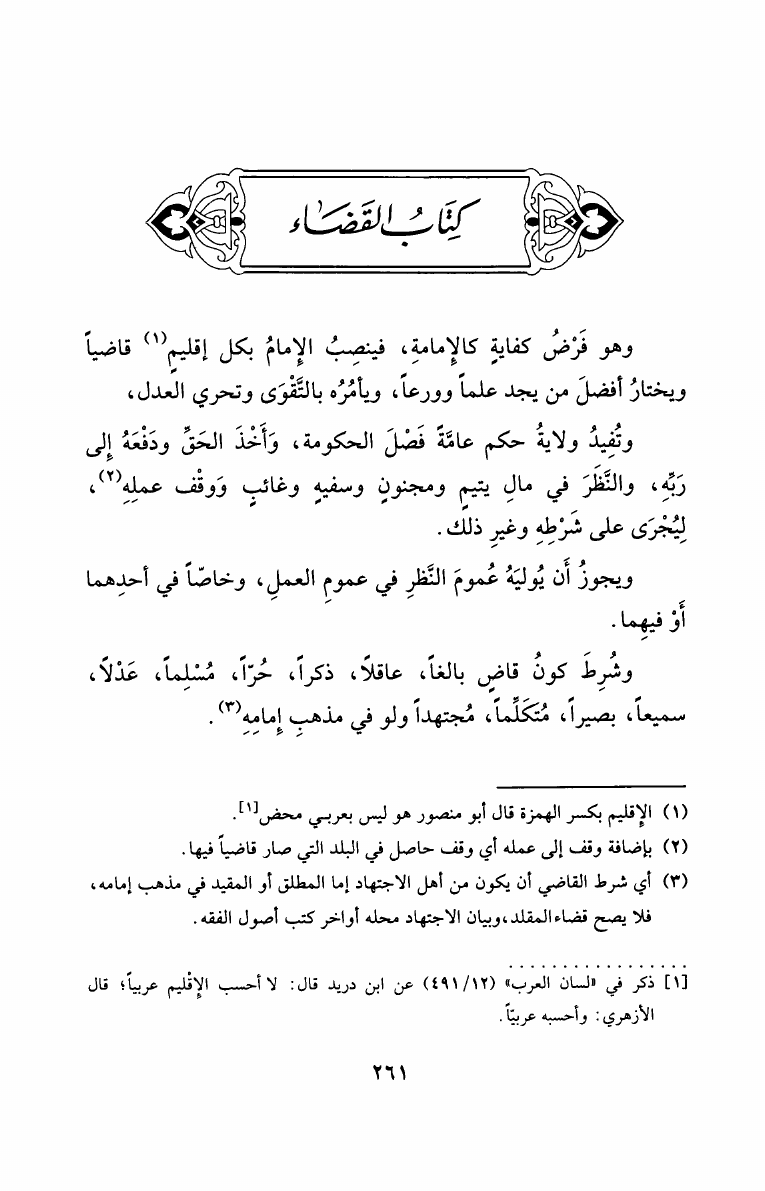 كِتَابُ القَضَاء
وهو فَرْضُ كفايةٍ كالإمامةِ، فينصِبُ الإمامُ بكل إقليمٍ(١) قاضياً
ويختارُ أفضلَ من يجد علماً وورعاً، ويأمُرُه بالتَّقْوَى وتحري العدل،
وتُفِيدُ ولايةُ حكمٍ عامَّةً فَصْلَ الحكومة، وَأَخْذَ الحَقِّ ودَفْعَهُ إلى
رَبِّهِ، والنَّظَرَ في مالِ يتيمٍ ومجنونٍ وسفيهٍ وغائبٍ وَوقْف عملِهِ(٢)،
لِيُجْرَى على شَرْطِهِ وغيرِ ذلك.
ويجوزُ أَن يُوليَهُ عُمومَ النَّظرِ في عمومِ العملِ، وخاصّاً في أحدِهما
أَوْ فيهِما.
وشُرِطَ كونُ قاضٍ بالغاً، عاقلاً، ذكراً، حُرّاً، مُسْلِماً، عَدْلاً،
سميعاً، بصيراً، مُتَكَلِّماً، مُجتهداً ولو في مذهبِ إِمامِهِ(٣).
(١) الإقليم بكسر الهمزة قال أبو منصور هو ليس بعربي محض[١].
(٢) بإضافة وقف إلى عمله أي وقف حاصل في البلد التي صار قاضياً فيها.
(٣) أي شرط القاضي أن يكون من أهل الاجتهاد إما المطلق أو المقيد في مذهب إمامه،
فلا يصح قضاء المقلد، وبيان الاجتهاد محله أواخر كتب أصول الفقه.
[١] ذكر في «لسان العرب» (٤٩١/١٢) عن ابن دريد قال: لا أحسب الإقليم عربياً؛ قال
الأزهري: وأحسبه عربيّاً.
٢٦١